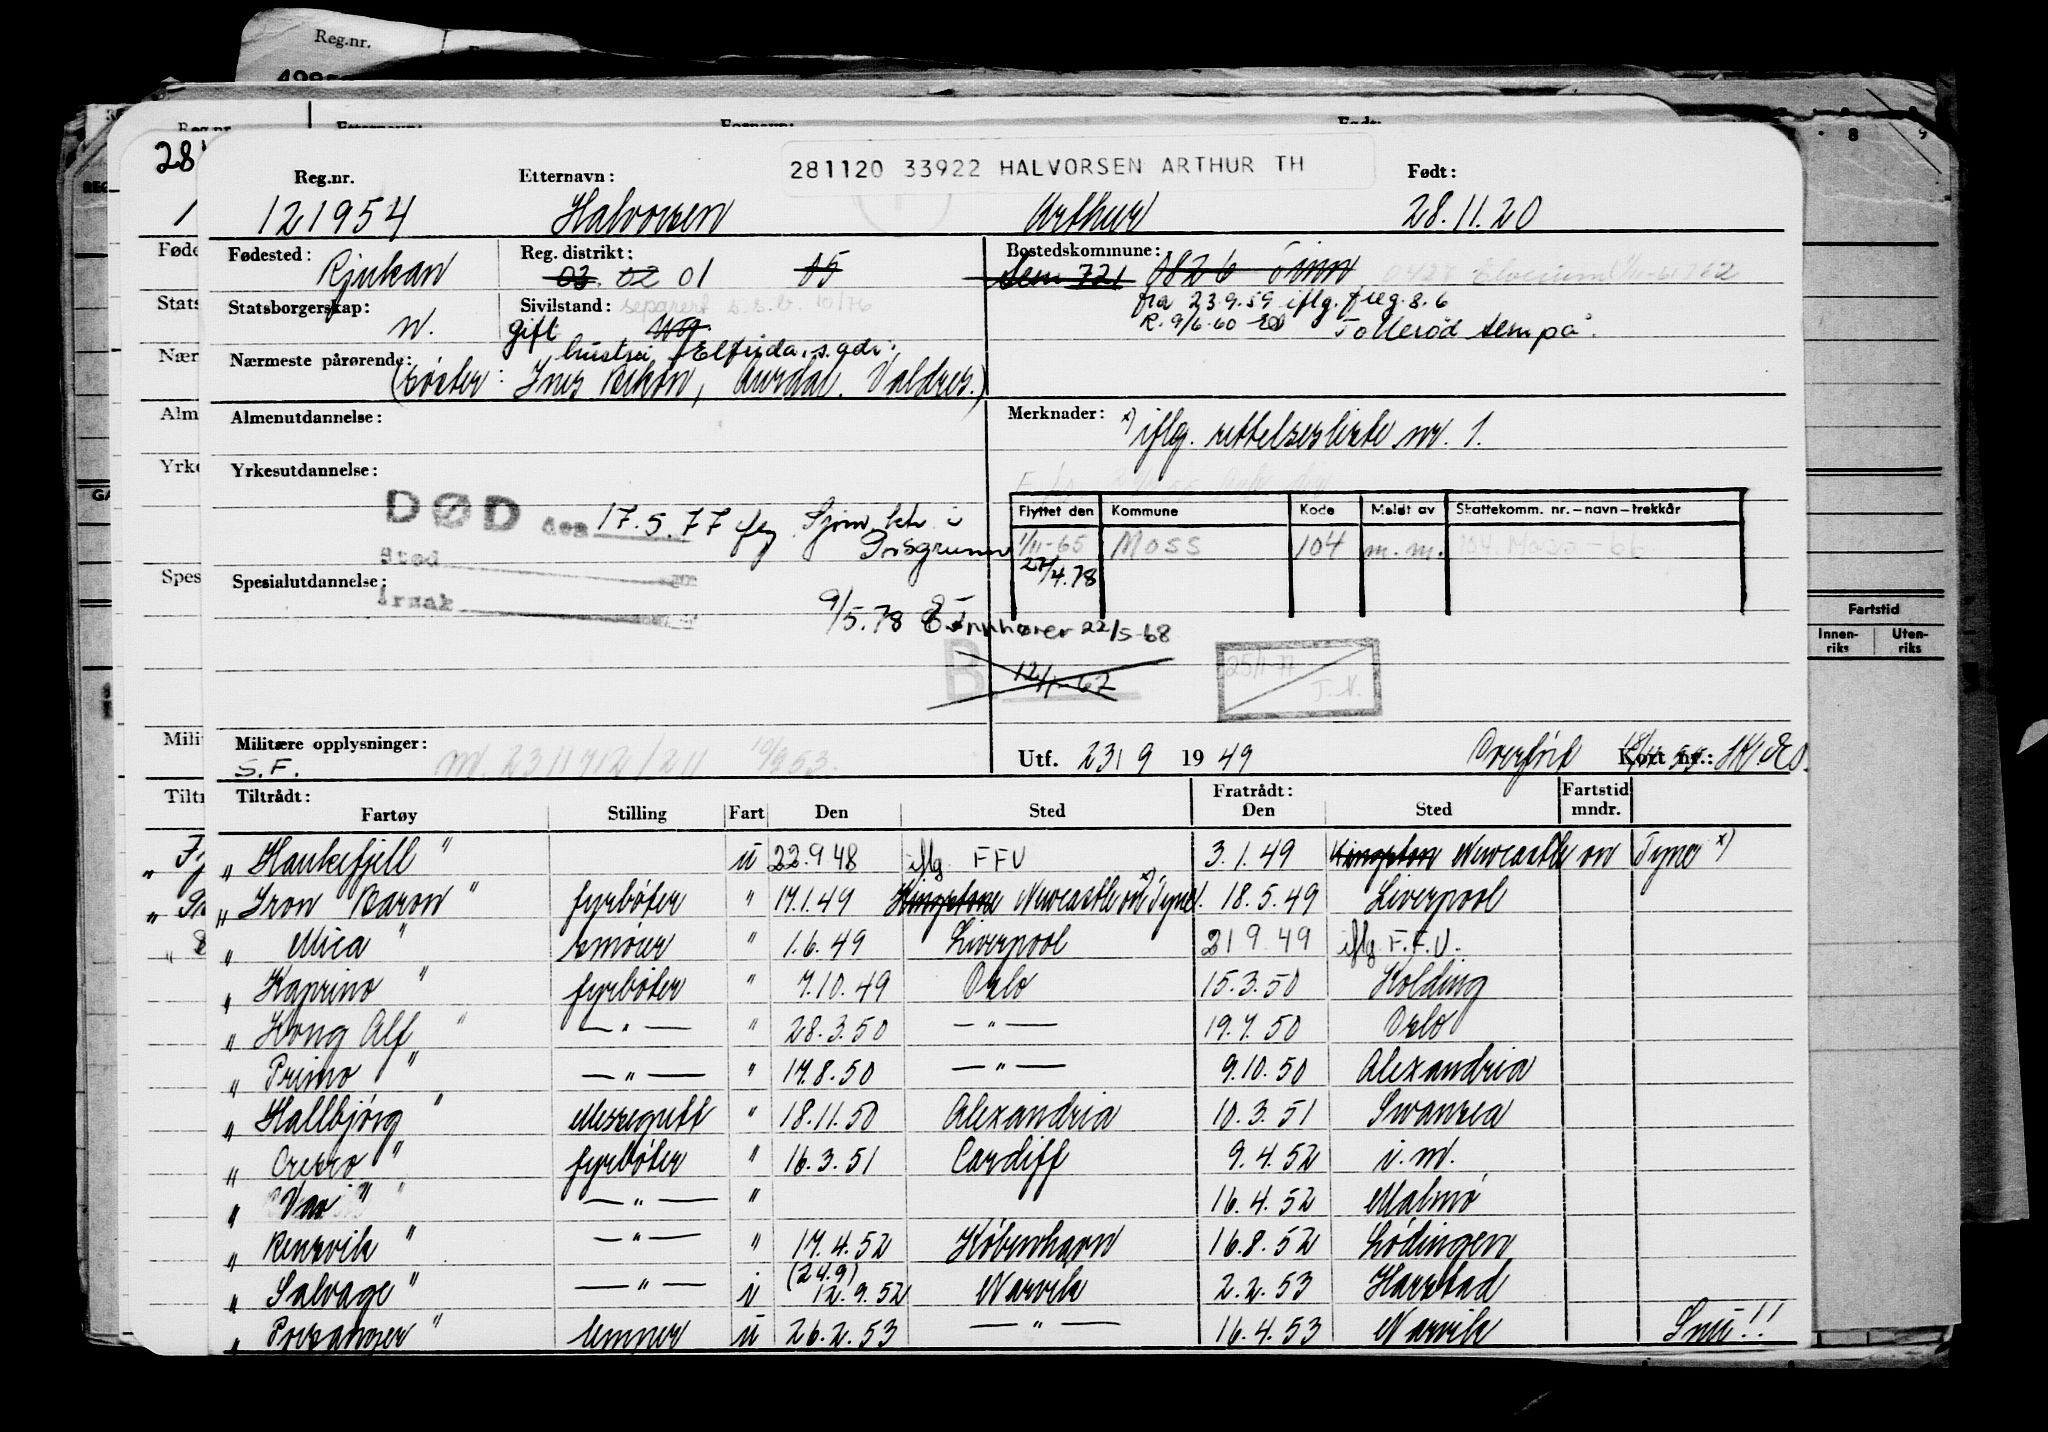 Reg.nr.
28
Reg.nr. Etternavn: 281120 33922 HALVORSEN ARTHUR TH Født:
121954 Halvorsen Arthur 28.11.20
Fødested: Reg. distrikt: Bostedskommune:
Rjukan 03 02 01 05 Sem 721 0826 Tinn
fra 23.9.59 iflg. freg. 8.6
Statsborgerskap: Sivilstand: separert s.s.b. 10/76
n. gift ug. R. 9/6-60 Tollerød Sem på.
hustru Elfrida, s. adr.
Nærmeste pårørende:
(søster: Ines Bekøn, Aurdal. Valdres.)
Almenutdannelse: Merknader: x) iflg. rettelsesliste nr. 1.
Yrkesutdannelse:
DØD den 17.5.77 flg. Sjøm.ktr i
Porsgrunn
Sted
Årsak
Flyttet den Kommune Kode Meldt av Skattekomm. nr.-navn-trekkår
1/11-65 Moss 104 m.m. 104 Moss - 66
24/4.78
Spesialutdannelse:
9/5.78 Innhører 22/5-68
B. 12/1-67 25/1-77
T.N.
Militære opplysninger: Utf. 23/9 1949 Overført Kort nr.:
S.F. 10/9 53.
Tiltrådt: Fratrådt: Fartstid
Fartøy Stilling Fart Den Sted Den Sted mndr.
" Haukefjell " u 22.9 48 iflg FFU 3.1.49 Kingston Newcastle on Tyne x)
" Iron Baron " fyrbøter " 17.1.49 Kingston Newcastle on Tyne x). 18.5.49 Liverpool
" Mica " smører " 1.6.49 Liverpool 21 9.49 iflg. F.F.U.
" Kaprino " fyrbøter " 7.10.49 Oslo 15.3.50 Kolding
" Kong Alf " — " — " 28.3.50 — " — 19.7.50 Oslo
" Primo " — " — " 17.8.50 — " — 9.10.50 Alexandria
" Hallbjørg " Messegutt " 18.11.50 Alexandria 10.3.51 Swansea
" Cresco " fyrbøter " 16.3.51 Cardiff 9.4.52 i.m.
" Vav " — " — " 16.4.52 Malmö
" Rensvik " — " — " 17.4.52 København 16.8.52 Lødingen
" Salvage " — " — i (24.9) 12.9.52 Narvik 2.2.53 Harstad
" Porsanger " lemper u 26.2.53 — " — 16.4.53 Narvik Snu!!
Fartstid
Innen-riks Uten-riks